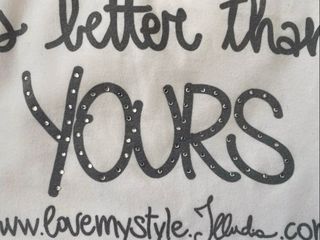 s better than
YOURS
www.lovemystyle.